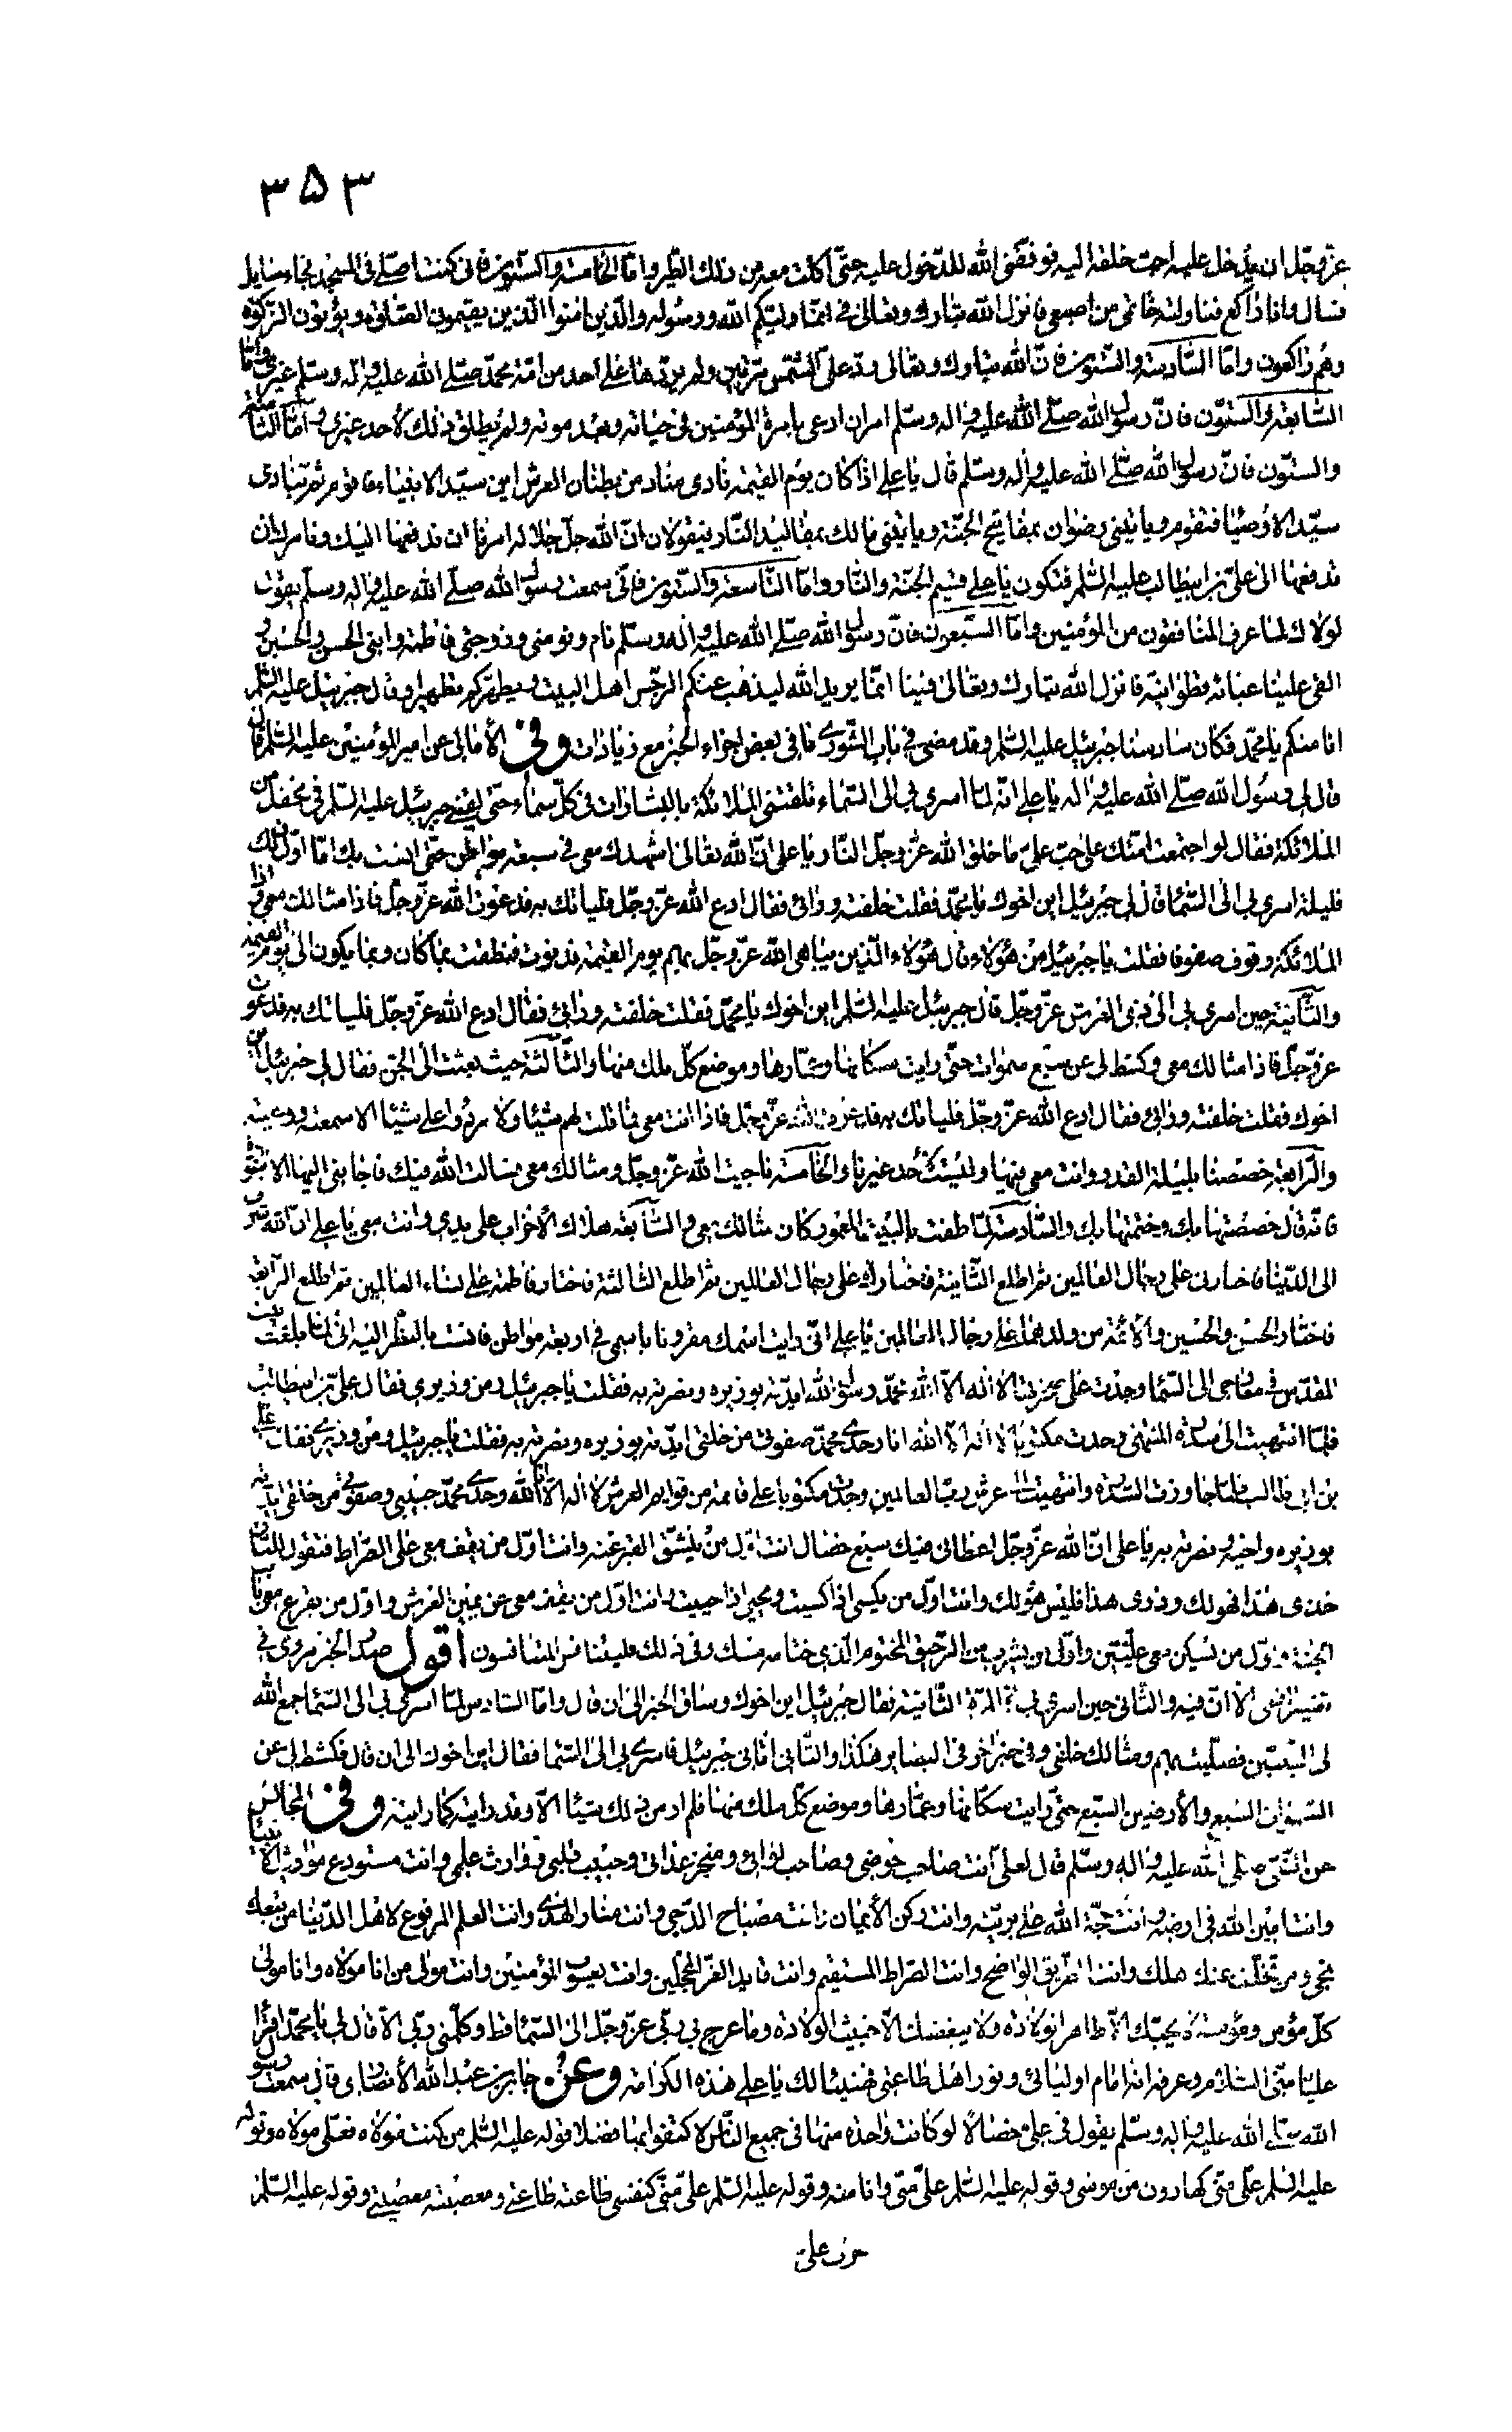 ٣٥٣
عزّ وجلّ ان يدخل عليه احبّ خلقه اليه فوفقني الله للدخول عليه حتّى اكلت معه من ذلك الطّير وامّا الخامسة والستّون فانّي كنت اصلّي في المسجد فجاء سايل
فسال وانا راكع فناولته خاتمي من اصبعي فانزل الله تبارك وتعالى فيّ انّما وليّكم الله ورسوله والّذين امنوا الّذين يقيمون الصّلوة ويؤتون الزّكوة
وهم راكعون وامّا السّادسة والستّون فانّ الله تبارك وتعالى ردّ علىّ الشّمس مرّتين ولم يردّها على احد من امّة محمّد صلّى الله عليه واله وسلّم غيري وامّا
السّابعة والستّون فانّ رسول الله صلّى الله عليه واله وسلّم امر ان ادعى بامرة المؤمنين في حياته وبعد موته ولم يطلق ذلك لأحد غيري وامّا الثّامنة
والستّون فانّ رسول الله صلّى الله عليه واله وسلّم قال يا علي اذا كان يوم القيمة نادى مناد من بطنان العرش اين سيّد الانبياء فاقوم ثمّ ينادى
سيّد الأوصياء فتقوم وياتيني رضوان بمفاتيح الجنّة وياتيني مالك بمقاليد النّار فيقولان انّ الله جلّ جلاله امرنا ان ندفعها اليك ونامرك ان
تدفعها الى عليّ بن ابيطالب عليه السّلم فتكون يا علي قسيم الجنّة والنّار وامّا التّاسعة والستّون فانّي سمعت رسول الله صلّى الله عليه واله وسلّم يقول
لولاك لما عرف المنافقون من المؤمنين وامّا السّبعون فانّ رسول الله صلّى الله عليه واله وسلّم نام ونومني وزوجتي فاطمة وابنيّ الحسن والحسين و
القى علينا عبائة قطوانيّة فانزل الله تبارك وتعالى فينا انّما يريد الله ليذهب عنكم الرّجس اهل البيت ويطهّركم تطهيرا وقال جبرئيل عليه السّلم
انا منكم يا محمّد فكان سادسنا جبرئيل عليه السّلم وقد مضى في باب الشّورى مافي بعض اجزاء الخبر مع زيادات وفي الأمالي عن امير المؤمنين عليه السّلم قال
قال لي رسول الله صلّى الله عليه واله يا علي انّه لمّا اسري بي الى السّماء تلقتني الملائكة بالبشارات في كلّ سماء حتّى لقيني جبرئيل عليه السّلم في محفل من
الملائكة فقال لو اجتمعت امّتك على حبّ عليّ ما خلق الله عزّ وجلّ النّار يا علي انّ الله تعالى اشهدك معي في سبعة مواطن حتّى انست بك امّا اوّل ذلك
فليلة اسري بي الى السّماء قال لي جبرئيل اين اخوك يا محمّد فقلت خلفته ورائي فقال ادع الله عزّ وجلّ فلياتك به فدعوت الله عزّ وجلّ فاذا مثالك معي واذا
الملائكة وقوف صفوفا فقلت يا جبرئيل من هؤلاء قال هؤلاء الّذين يباهي الله عزّ وجلّ بهم يوم القيمة فدنوت فنطقت بما كان وبما يكون الى يوم القيمة
والثّانية حين اسري بي الى ذي العرش عزّ وجلّ قال جبرئيل عليه السّلم اين اخوك يا محمّد فقلت خلفته ورائي فقال ادع الله عزّ وجلّ فلياتك به فدعوت
عزّ وجلّ فاذا مثالك معي وكشط لي عن سبع سموات حتّى رايت سكانها وعمّارها وموضع كلّ ملك منها والثّالثة حيث بعثت الى الجنّ فقال لي جبرئيل اين
اخوك فقلت خلفته ورائي فقال ادع الله عزّ وجلّ فلياتك به فدعوت الله عزّ وجلّ فاذا انت معي فما قلت لهم شيئا ولا ردّوا علي شيئا الا سمعته ووعيته
والرّابعة خصّصنا بليلة القدر وانت معي فيها وليست لأحد غيرنا والخامسة ناجيت الله عزّ وجلّ ومثالك معي فسالت الله فيك فاجابني اليها الا النّبوّة
فانّه قال خصصتها بك وختمتها بك والسّادسة لمّا طفت بالبيت المعمور كان مثالك معي والسّابعة هلاك الأحزاب على يدي وانت معي يا علي انّ الله اشرف
الى الدّنيا فاختارني على رجال العالمين ثمّ اطلع الثّانية فاختارك على رجال العالمين ثمّ اطلع الثّالثة فاختار فاطمة على نساء العالمين ثمّ اطلع الرّابعة
فاختار الحسن والحسين والأئمّة من ولدهما على رجال العالمين يا علي انّي رايت اسمك مقرونا باسمي في اربعة مواطن فانست بالنّظر اليه انّي لمّا بلغت بيت
المقدّس في معراجي الى السّماء وجدت على صخرتها لا اله الاّ الله محمّد رسول الله ايدّته بوزيره ونصرته به فقلت يا جبرئيل ومن وزيري فقال عليّ بن ابيطالب
فلمّا انتهيت الى سدرة المنتهى وجدت مكتوبا لا اله الاّ الله انا وحدي محمّد صفوتي من خلقي ايدّته بوزيره ونصرته به فقلت يا جبرئيل ومن وزيري فقال عليّ
بن ابي طالب فلمّا جاوزت السّدرة وانتهيت الى عرش ربّ العالمين وجدت مكتوبا على قائمة من قوايم العرش لا اله الاّ انا الله وحدي محمّد حبيبي وصفوتي من خلقي ايدّته
بوزيره واخيه ونصرته به يا علي انّ الله عزّ وجلّ اعطاني فيك سبع خصال انت اوّل من ينشقّ القبر عنه وانت اوّل من يقف معي على الصّراط فتقول للنّار
خذي هذا فهو لك وذري هذا فليس هو لك وانت اوّل من يكسى اذا كسيت ويحيى اذا حييت وانت اوّل من يقف معي عن يمين العرش واوّل من يقرع معي باب
الجنّة واوّل من يسكن معي علّيّين واوّل من يشرب معي من الرّحيق المختوم الّذي ختامه مسك وفي ذلك فليتنافس المتنافسون اقول صدر الخبر مروي في
تفسير القمي الاّ انّ فيه والثّاني حين اسري بي في المرّة الثّانية فقال جبرئيل اين اخوك وساق الخبر الى ان قال وامّا السّادس لمّا اسري بي الى السّماء جمع الله
لي النّبيّين فصلّيت بهم ومثالك خلفي وفي خبر اخر في البصاير هكذا والثّاني اتاني جبرئيل فاسري بي الى السّماء فقال اين اخوك الى ان قال فكشط لي عن
السّموات السّبع والأرضين السّبع حتّى رايت سكّانها وعمّارها وموضع كلّ ملك منها فلم ار من ذلك شيئا الاّ وقد رايته كما رايته وفي المجالس
عن النّبيّ صلّى الله عليه واله وسلّم قال لعلي انت صاحب حوضي وصاحب لوائي ومنجز عداتي وحبيب قلبي ووارث علمي وانت مستودع مواريث الأنبياء
وانت امين الله في ارضه وانت حجّة الله على بريّته وانت ركن الأيمان وانت مصباح الدّجى وانت منار الهدى وانت العلم المرفوع لأهل الدّنيا من تبعك
نجى ومن تخلّف عنك هلك وانت الطّريق الواضح وانت الصّراط المستقيم وانت قايد الغرّ المحجّلين وانت يعسوب المؤمنين وانت مولى من انا مولاه وانا مولى
كلّ مؤمن ومؤمنة لا يحبّك الاّ طاهر الولادة ولا يبغضك الاّ خبيث الولادة وما عرج بي ربّي عزّ وجلّ الى السّماء قط وكلّمني ربّي الاّ قال لي يا محمّد اقرأ
عليّا منّي السّلام وعرفه انّه امام اوليائي ونور اهل طاعتي فهنيئا لك يا علي هذه الكرامة وعن جابر بن عبد الله الأنصاري قال سمعت رسول
الله صلّى الله عليه واله وسلّم يقول في عليّ خصالا لو كانت واحدة منها في جميع النّاس لاكتفوا بها فضلا قوله عليه السّلم من كنت مولاه فعلي مولاه وقوله
عليه السّلم عليّ منّي كهارون من موسى وقوله عليه السّلم عليّ منّي وانا منه وقوله عليه السّلم عليّ منّي كنفسي طاعته طاعتي ومعصيته معصيتي وقوله عليه السّلم
حرب علي